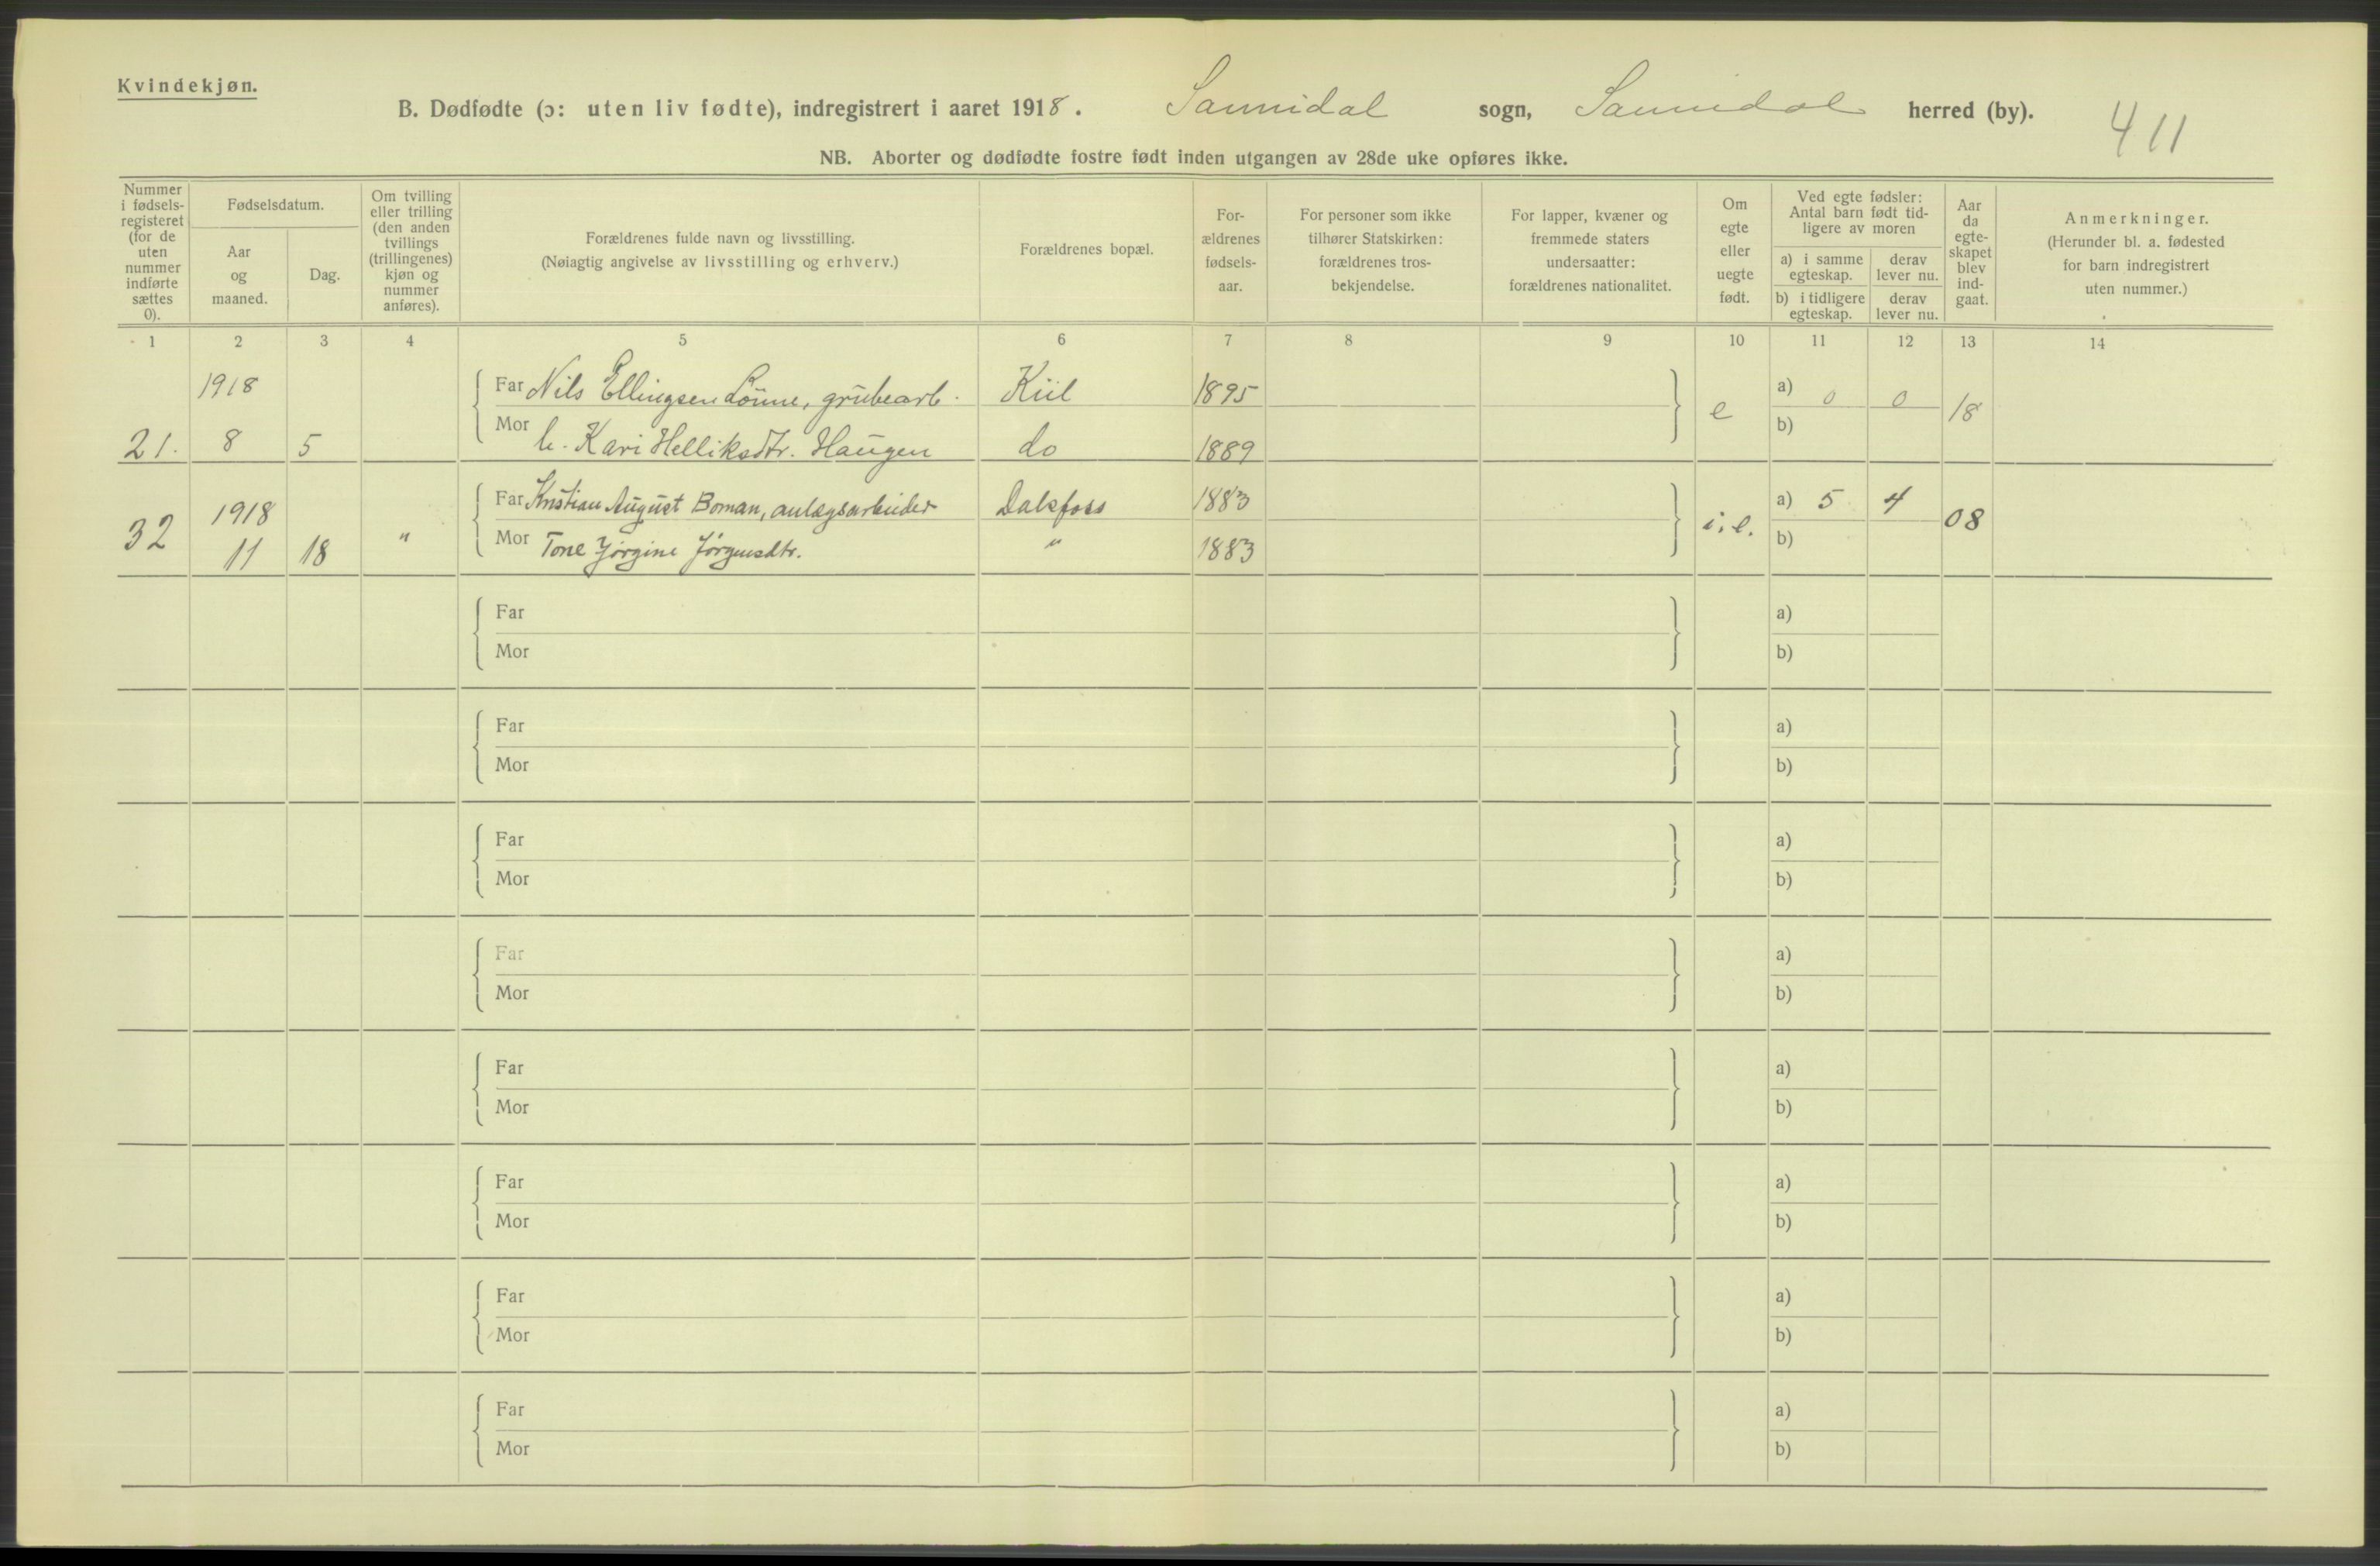 Kvindekjøn.
B. Dødfødte (ɔ: uten liv fødte), indregistrert i aaret 1918. Sannidal sogn, Sannidal herred (by). 411
NB. Aborter og dødfødte fostre født inden utgangen av 28de uke opføres ikke.
Nummer i fødsels- registeret (for de uten nummer indførte sættes 0).
Fødselsdatum.
Aar og maaned.
Dag.
Om tvilling eller trilling (den anden tvillings (trillingenes) kjøn og nummer anføres).
Forældrenes fulde navn og livsstilling.
(Nøiagtig angivelse av livsstilling og erhverv.)
Forældrenes bopæl.
For- ældrenes fødsels- aar.
For personer som ikke tilhører Statskirken: forældrenes tros- bekjendelse.
For lapper, kvæner og fremmede staters undersaatter: forældrenes nationalitet.
Om egte eller uegte født.
Ved egte fødsler: Antal barn født tid- ligere av moren
a) i samme egteskap.
derav lever nu.
b) i tidligere egteskap.
derav lever nu.
Aar da egte- skapet blev ind- gaat.
Anmerkninger.
(Herunder bl. a. fødested for barn indregistrert uten nummer.)
1 2 3 4 5 6 7 8 9 10 11 12 13 14
1918 Far Nils Ellingsen Lønne, grubearb. Kiil 1895 e a) 0 0 18
21. 8 5 Mor h. Kari Helliksdtr. Haugen do 1889 b)
1918 Far Kristian August Boman, anlægsarbeider Dalsfoss 1883 i:e. a) 5 4 08
32 11 18 " Mor Tone Jørgine Jørgensdtr. " 1883 b)
Far a)
Mor b)
Far a)
Mor b)
Far a)
Mor b)
Far a)
Mor b)
Far a)
Mor b)
Far a)
Mor b)
Far a)
Mor b)
Far a)
Mor b)